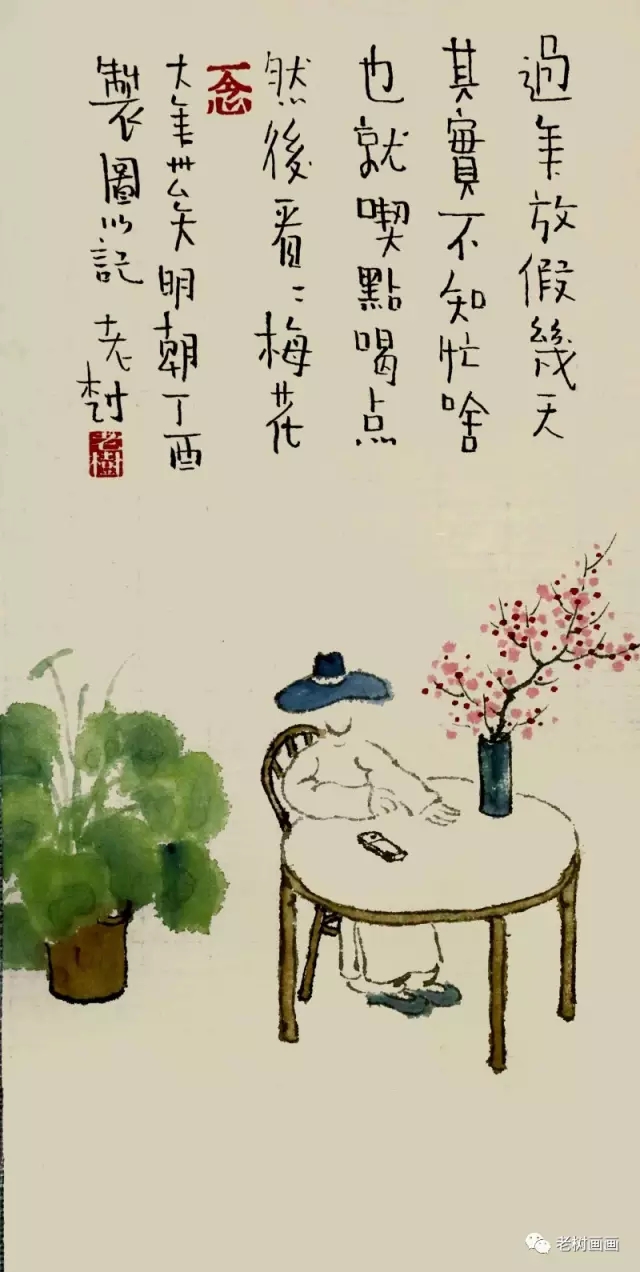 過年放假幾天
其實不知忙啥
也就喫點喝点
然後看〻梅花
一念
大年卅矣明朝丁酉
製圖以記 老树
老樹
老树画画